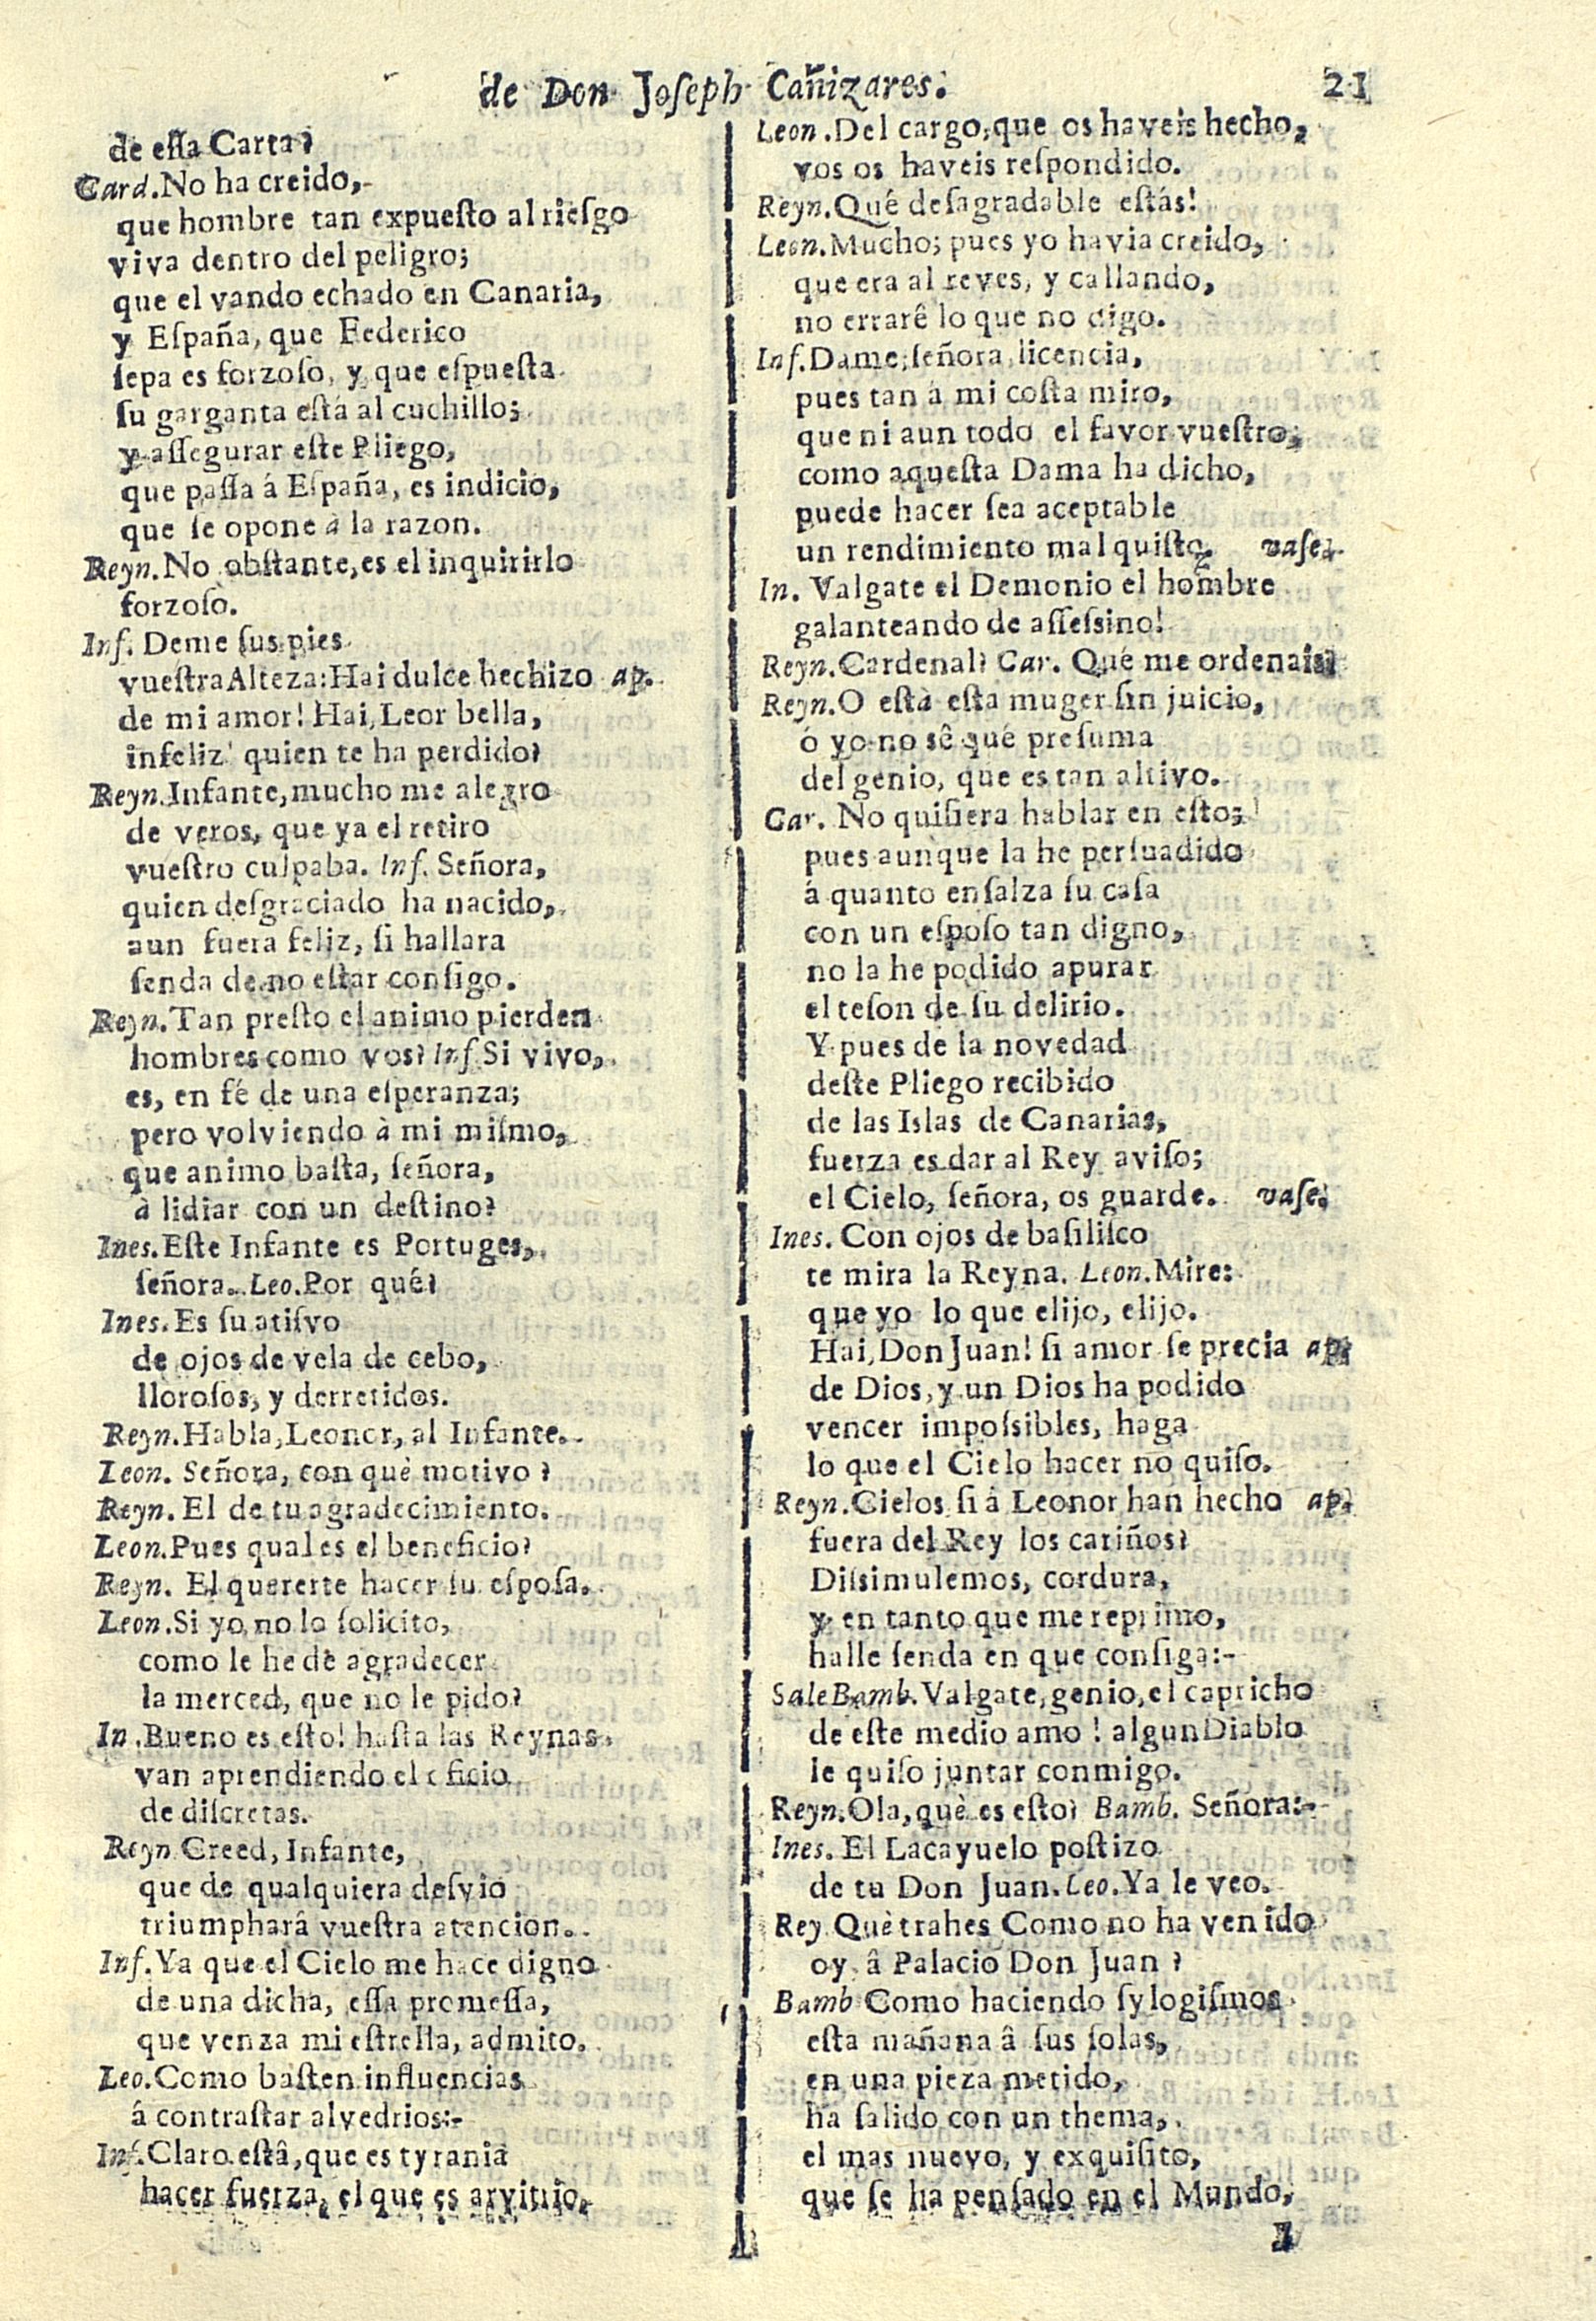 de Don Joseph Cañizares. 21
de essa Carta?
Card. No ha creido,
que hombre tan expuesto al riesgo
viva dentro del peligro;
que el vando echado en Canaria,
y España, que Federico
sepa es forzoso, y que espuesta
su garganta está al cuchillo;
y assegurar este Pliego,
que passa á España, es indicio,
que se opone à la razon.
Reyn. No obstante, es el inquirirlo
forzoso.
Inf. Deme sus pies
vuestra Alteza: Hai dulce hechizo ap.
de mi amor! Hai, Leor bella,
infeliz quien te ha perdido?
Reyn. Infante, mucho me alegro
de veros, que ya el retiro
vuestro culpaba. Inf. Señora,
quien desgraciado ha nacido,
aun fuera feliz, si hallara
senda de no estar consigo.
Reyn. Tan presto el animo pierden
hombres como vos? Inf. Si vivo,
es, en fé de una esperanza;
pero volviendo à mi mismo,
que animo basta, señora,
à lidiar con un destino?
Ines. Este Infante es Portuges,
señora. Leo. Por qué?
Ines. Es su atisvo
de ojos de vela de cebo,
llorosos, y derretidos.
Reyn. Habla, Leonor, al Infante.
Leon. Señora, con què motivo?
Reyn. El de tu agradecimiento.
Leon. Pues qual es el beneficio?
Reyn. El quererte hacer su esposa.
Leon. Si yo no lo solicito,
como le he de agradecer
la merced, que no le pido?
In. Bueno es esto! hasta las Reynas
van aprendiendo el oficio
de discretas.
Reyn Creed, Infante,
que de qualquiera desvio
triumphará vuestra atencion.
Inf. Ya que el Cielo me hace digno
de una dicha, essa promessa,
que venza mi estrella, admito.
Leo. Como basten influencias
á contrastar alvedrios:-
Inf. Claro está, que es tyrania
hacer fuerza, el que es arvitrio.
Leon. Del cargo, que os haveis hecho,
vos os haveis respondido.
Reyn. Qué desagradable estás!
Leon. Mucho; pues yo havia creido,
que era al reves, y callando,
no errarê lo que no digo.
Inf. Dame, señora, licencia,
pues tan á mi costa miro,
que ni aun todo el favor vuestro,
como aquesta Dama ha dicho,
puede hacer sea aceptable
un rendimiento mal quisto. vase.
In. Valgate el Demonio el hombre
galanteando de assessino!
Reyn. Cardenal? Car. Qué me ordenais?
Reyn. O està esta muger sin juicio,
ó yo no sê qué presuma
del genio, que es tan altivo.
Car. No quisiera hablar en esto;
pues aunque la he persuadido
á quanto ensalza su casa
con un esposo tan digno,
no la he podido apurar
el teson de su delirio.
Y pues de la novedad
deste Pliego recibido
de las Islas de Canarias,
fuerza es dar al Rey aviso;
el Cielo, señora, os guarde. vase.
Ines. Con ojos de basilisco
te mira la Reyna. Leon. Mire:
que yo lo que elijo, elijo.
Hai, Don Juan! si amor se precia ap.
de Dios, y un Dios ha podido
vencer impossibles, haga
lo que el Cielo hacer no quiso.
Reyn. Cielos si á Leonor han hecho ap.
fuera del Rey los cariños?
Dissimulemos, cordura,
y en tanto que me reprimo,
halle senda en que consiga:-
Sale Bamb. Valgate, genio, el capricho
de este medio amo! algun Diablo
le quiso juntar conmigo.
Reyn. Ola, què es esto? Bamb. Señora:-
Ines. El Lacayuelo postizo
de tu Don Juan. Leo. Ya le veo.
Rey Què trahes Como no ha venido
oy â Palacio Don Juan?
Bamb Como haciendo sylogismos
esta mañana â sus solas,
en una pieza metido,
ha salido con un thema,
el mas nuevo, y exquisito,
que se ha pensado en el Mundo,